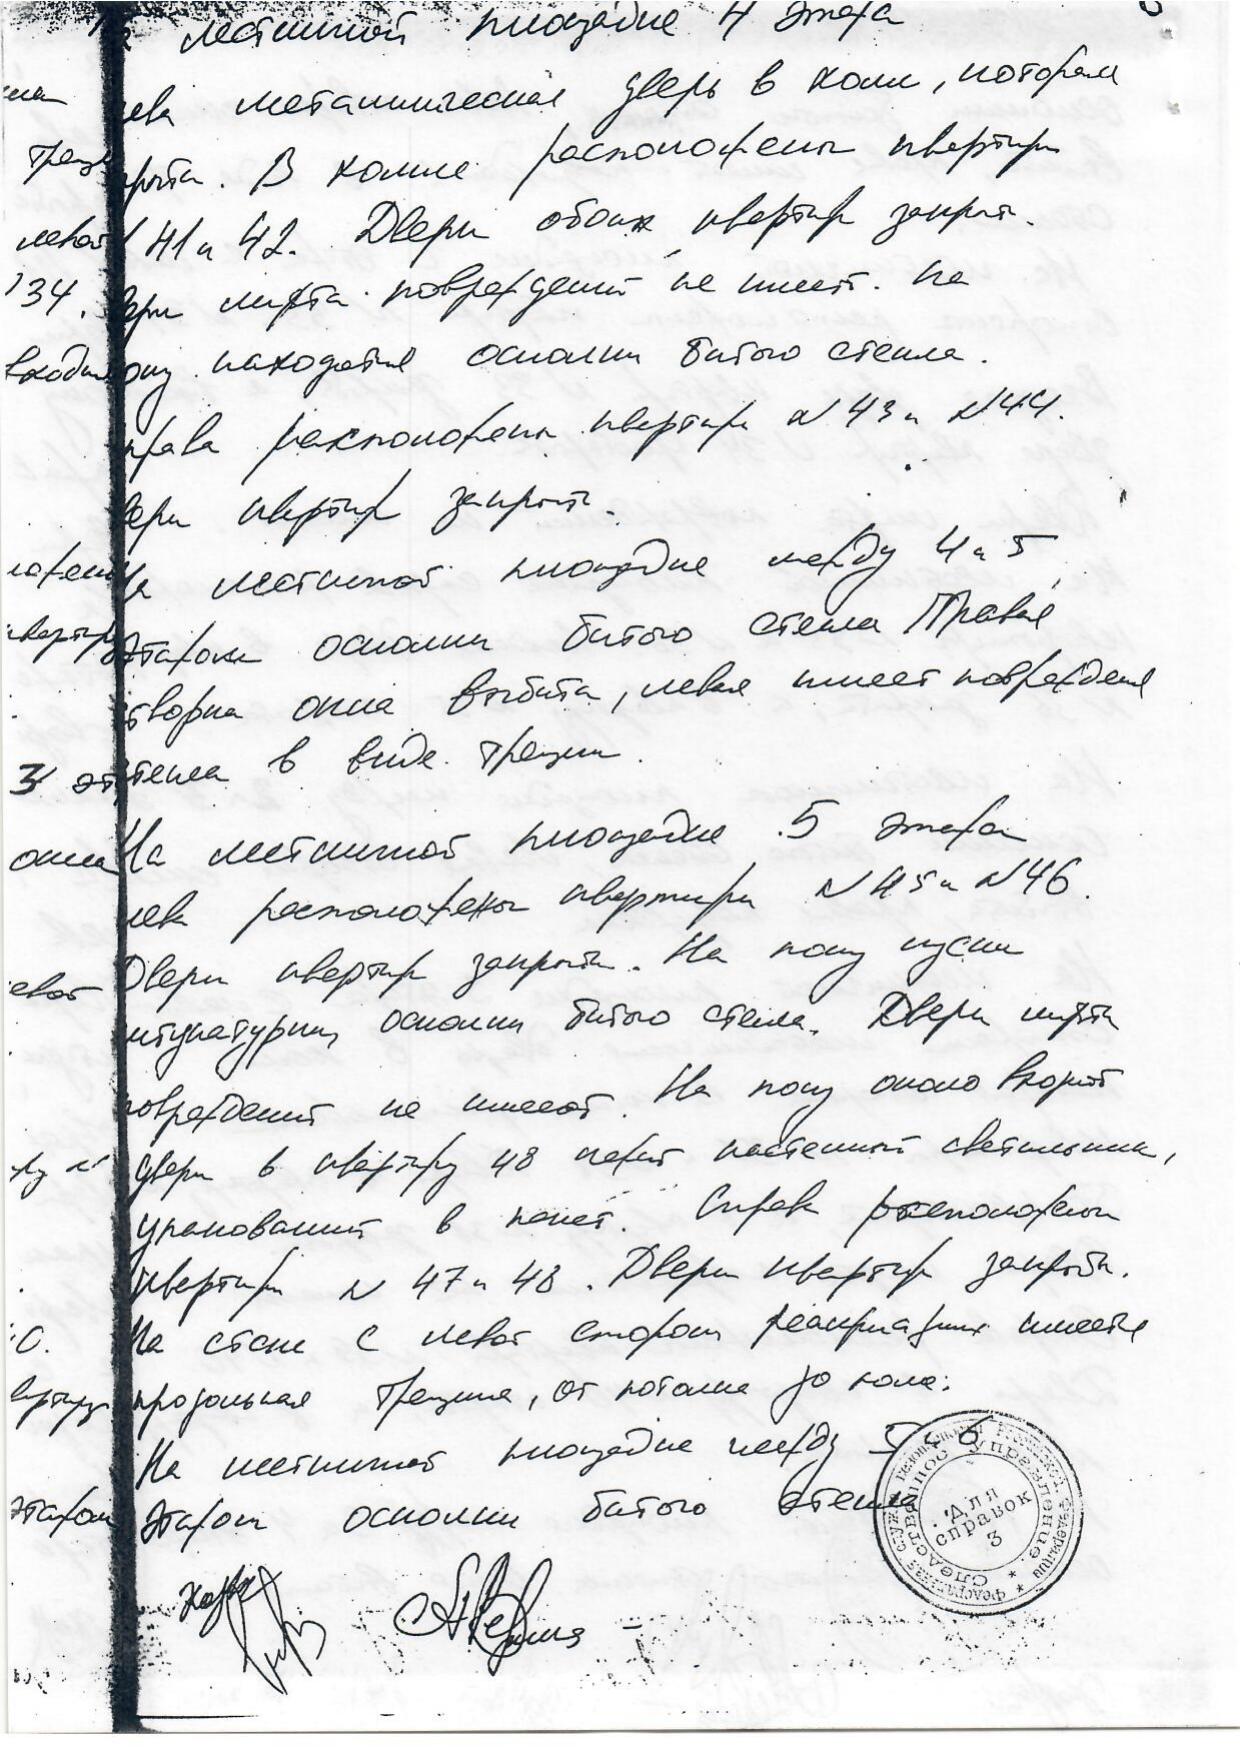 На лестничной площадке 4 этажа
лева металлическая дверь в холл, которая
крыта. В холле расположены квартиры
41 и 42. Двери обоих квартир закрыты.
вери лифта повреждений не имеют. На
полу находятся осколки битого стекла.
права расположены квартиры N 43 и N 44.
вери квартир закрыты.
На лестничной площадке между 4 и 5
этажом осколки битого стекла Правая
створка окна выбита, левая имеет повреждения
стекла в виде трещин.
На лестничной площадке 5 этажа
лева расположены квартиры N 45 и N 46.
Двери квартир закрыты. На полу куски
штукатурки, осколки битого стекла. Двери лифта
повреждений не имеют. На полу около входной
двери в квартиру 48 лежит настенный светильник,
упакованный в пакет. Справа расположены
квартиры N 47 и 48. Двери квартир закрыты.
На стене с левой стороны имеется
продольная трещина, от потолка до пола.
На лестничной площадке между 5 и 6
этажом осколки битого стекла
Федеральная служба безопасности Российской Федерации
Следственное управление
Для
справок
3